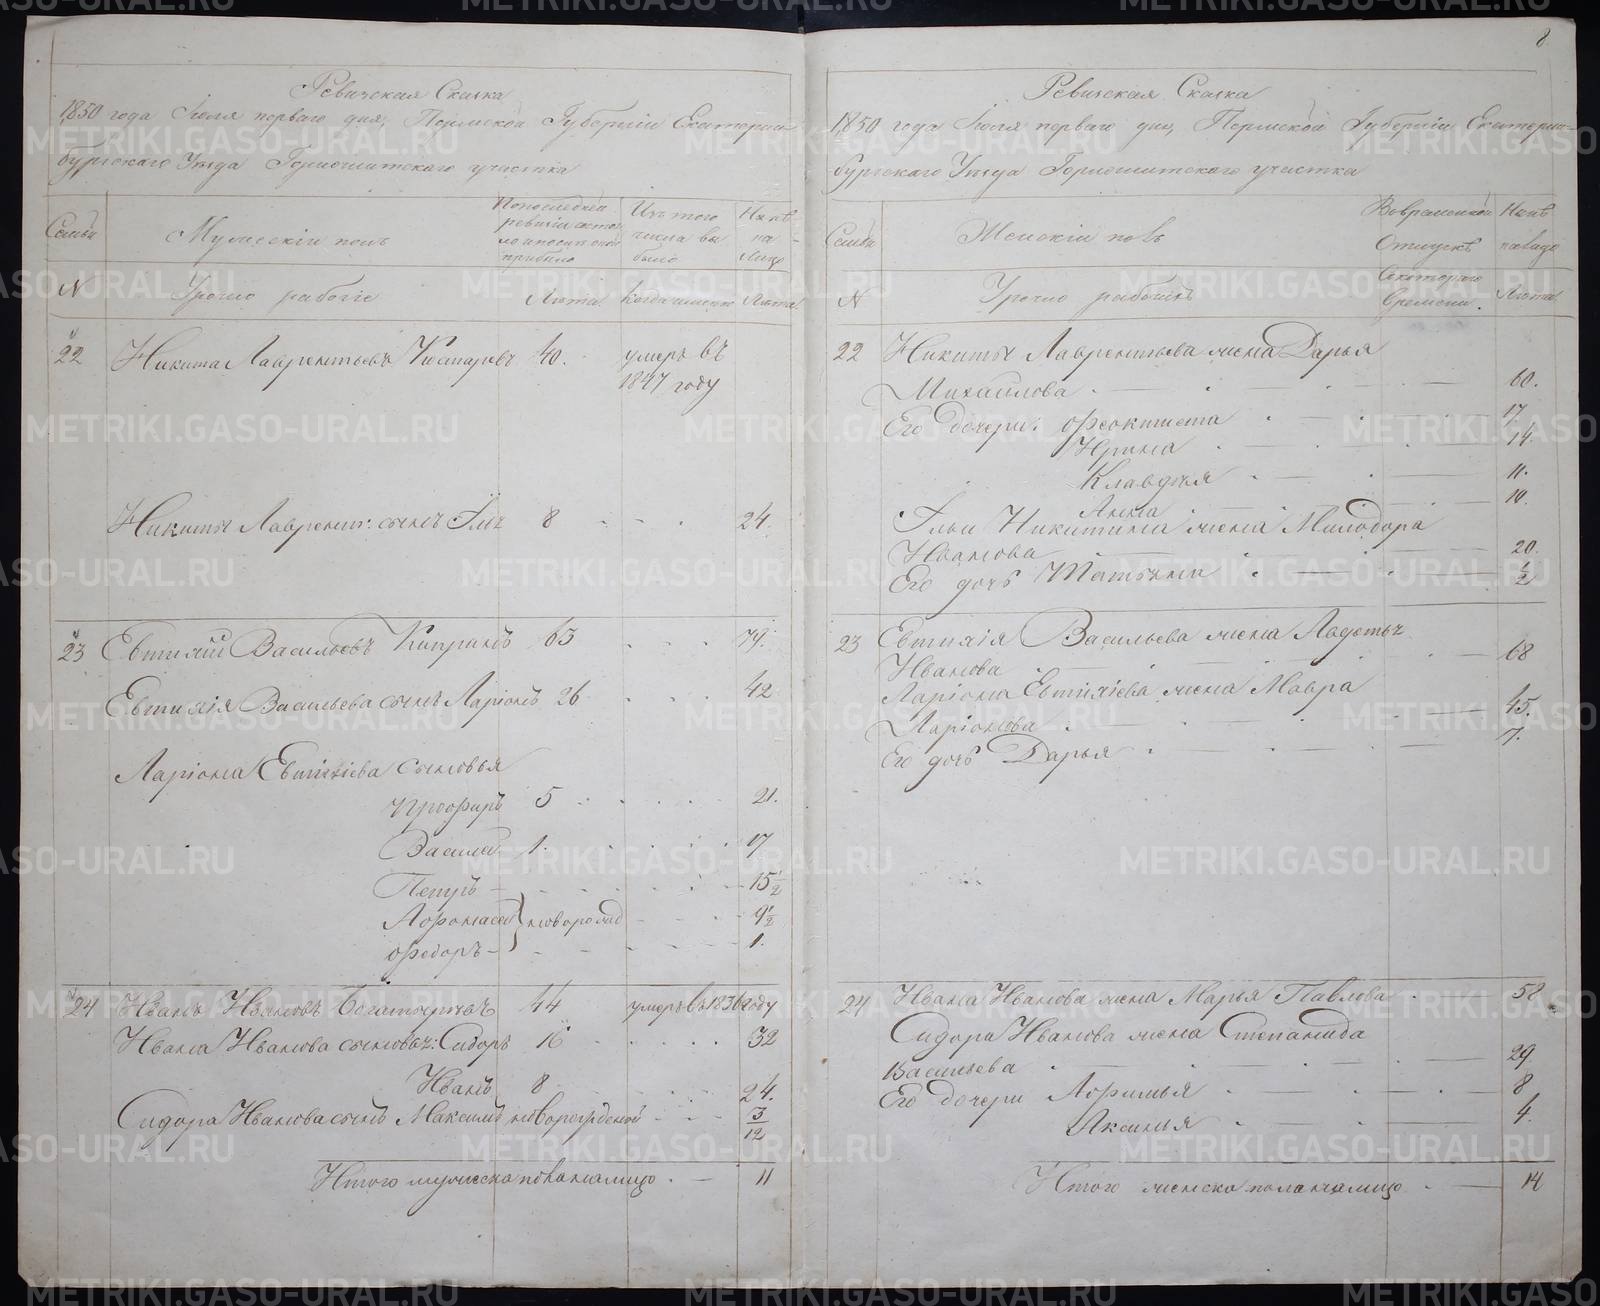 8
Ревизская Сказка
1850 года Іюля перваго дня, Пермской Губерніи Екатерин-
бургскаго Уѣзда Горнощитскаго участка
Семьи
Мужескій полъ
По последней ревизіи состояло и после оной прибыло
Изъ того числа выбыло
Нынѣ на лицо
N
Урочно рабочіе
Лѣта
Когда именно
Лѣта
22
Никита Лаврентьевъ 40.
умеръ въ
1847 году
Никиты Лаврент: сынъ Илья 8 24.
23 Евтихій Васильевъ 63 79.
Евтихія Васильева сынъ Ларіонъ 26 42
Ларіона Евтихіева сыновья
Профиръ 5 21.
Василій 1. 17
Петръ 15 1/2
Афонасей новорожд 9 1/2
Федоръ 1.
24 Иванъ Ивановъ Богатыревъ 44 умеръ въ 1836 году
Ивана Иванова сыновья: Сидоръ 16 32
Иванъ 8 24.
Сидора Иванова сынъ Максимъ новорожденой 3/12
Итого мужеска пола налицо 11
Ревизская Сказка
1850 года Іюля перваго дня, Пермской Губерніи Екатерин-
бургскаго Уѣзда Горнощитскаго участка
Семьи
Женскій полъ
Во временной Отлучкѣ
Нынѣ налицо
N
Урочно рабочихъ
Съ котораго Времени.
Лѣта
22 Никиты Лаврентьева жена Дарья
Михайлова 60.
Его дочери: Феоктиста 17
Ирина 14
Клавдия 11.
Анна 10.
Ильи Никитина жена Милодора
Иванова 20.
Его дочь Татьяна 1/2
23 Евтихія Васильева жена Авдотья
Иванова 68
Ларіона Евтихіева жена Мавра
Ларіонова 45.
Его дочь Дарья 7.
24 Ивана Иванова жена Марья Павлова 58
Сидора Иванова жена Степанида
Васильева 29
Его дочери Афимья 8
Аксинья 4.
Итого женска пола налицо 14
METRIKI.GASO-URAL.RU